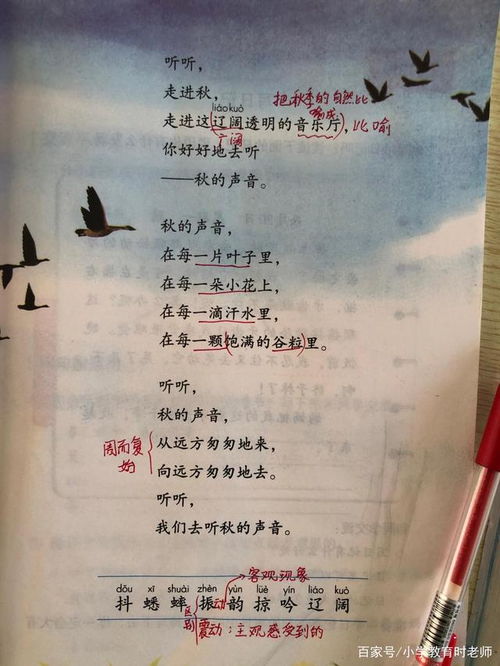 听听，
走进秋，
把秋季的自然比
喻成
liáo kuò
走进这辽阔透明的音乐厅，比喻
宽阔
你好好地去听
——秋的声音。
秋的声音，
在每一片叶子里，
在每一朵小花上，
在每一滴汗水里，
在每一颗饱满的谷粒里。
听听，
秋的声音，
周而复
始
从远方匆匆地来，
向远方匆匆地去。
听听，
我们去听秋的声音。
客观现象
dǒu xī shuài zhèn yùn lüè yín liáo kuò
抖 蟋 蟀 振动 韵 掠 吟 辽 阔
区别
震动：主观感受到的
百家号/小学教育时老师